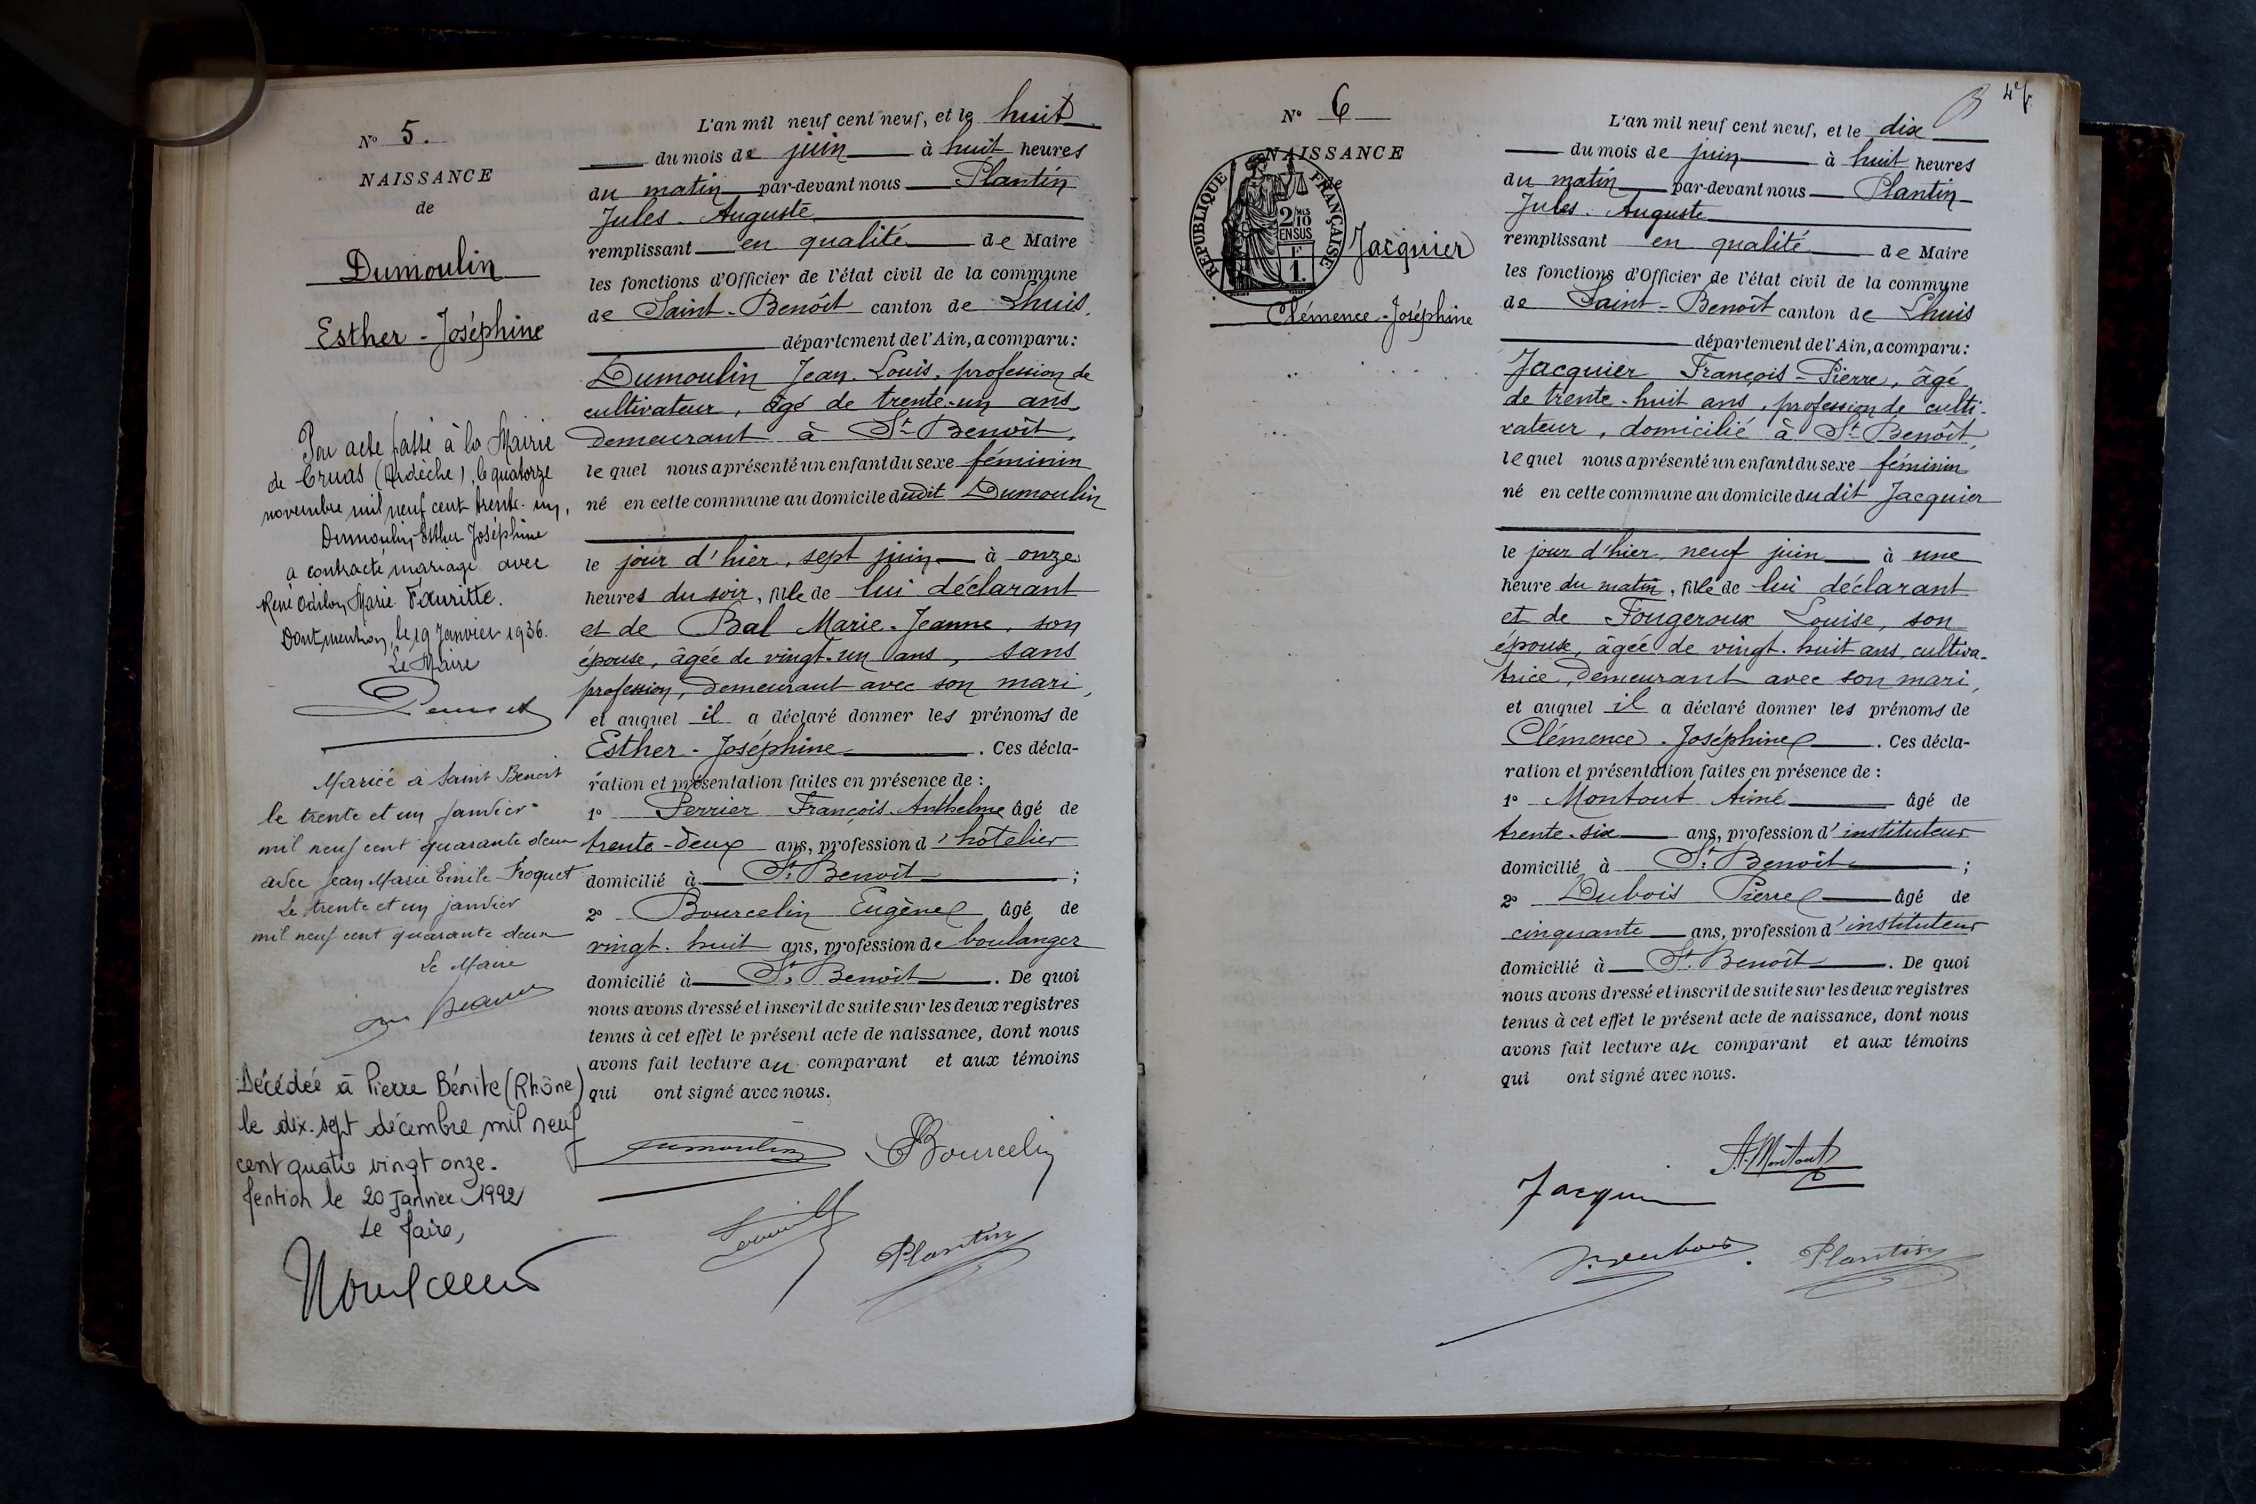 N° 5.
NAISSANCE
de
Dumoulin
Esther - Joséphine
Par acte passé à la Mairie
de Cruas (Ardèche), le quatorze
novembre mil neuf cent trente-un,
Dumoulin Esther Joséphine
a contracté mariage avec
René Odilon Marie Fauritte.
Dont mention, le 19 Janvier 1936.
Le Maire
Mariée à Saint Benoit
le trente et un janvier
mil neuf cent quarante deux
avec Jean Marie Emile Troquet
Le trente et un janvier
mil neuf cent quarante deux
Le Maire
Décédée à Pierre Bénite (Rhône)
le dix-sept décembre mil neuf
cent quatre vingt onze.
Mention le 20 Janvier 1992
Le Maire,
L'an mil neuf cent neuf, et le huit
du mois de juin à huit heures
du matin par-devant nous Plantin
Jules - Auguste
remplissant en qualité de Maire
les fonctions d'Officier de l'état civil de la commune
de Saint-Benoît canton de Lhuis.
département de l'Ain, a comparu :
Dumoulin Jean-Louis, profession de
cultivateur, âgé de trente-un ans,
demeurant à St Benoît,
lequel nous a présenté un enfant du sexe féminin
né en cette commune au domicile dudit Dumoulin
le jour d'hier, sept juin à onze
heures du soir, fille de lui déclarant
et de Bal Marie-Jeanne, son
épouse, âgée de vingt-un ans, sans
profession, demeurant avec son mari,
et auquel il a déclaré donner les prénoms de
Esther - Joséphine . Ces décla-
ration et présentation faites en présence de :
1° Perrier François-Anthelme âgé de
trente-deux ans, profession d'hôtelier
domicilié à St Benoît ;
2° Bourcelin Eugène âgé de
vingt-huit ans, profession de boulanger
domicilié à St Benoît . De quoi
nous avons dressé et inscrit de suite sur les deux registres
tenus à cet effet le présent acte de naissance, dont nous
avons fait lecture au comparant et aux témoins
qui ont signé avec nous.
Dumoulin Bourcelin
Plantin
4e f.
N° 6
NAISSANCE
de
RÉPUBLIQUE FRANÇAISE
2 MES 10
EN SUS
1F
Jacquier
Clémence - Joséphine
L'an mil neuf cent neuf, et le dix
du mois de juin à huit heures
du matin par-devant nous Plantin
Jules - Auguste
remplissant en qualité de Maire
les fonctions d'Officier de l'état civil de la commune
de Saint-Benoît canton de Lhuis
département de l'Ain, a comparu :
Jacquier François-Pierre, âgé
de trente-huit ans, profession de culti-
vateur, domicilié à St Benoît,
lequel nous a présenté un enfant du sexe féminin
né en cette commune au domicile dudit Jacquier
le jour d'hier, neuf juin à une
heure du matin, fille de lui déclarant
et de Fougeroux Louise, son
épouse, âgée de vingt-huit ans, cultiva-
trice, demeurant avec son mari,
et auquel il a déclaré donner les prénoms de
Clémence - Joséphine . Ces décla-
ration et présentation faites en présence de :
1° Montout Aimé âgé de
trente-six ans, profession d'instituteur
domicilié à St Benoît ;
2° Dubois Pierre âgé de
cinquante ans, profession d'instituteur
domicilié à St Benoît . De quoi
nous avons dressé et inscrit de suite sur les deux registres
tenus à cet effet le présent acte de naissance, dont nous
avons fait lecture au comparant et aux témoins
qui ont signé avec nous.
A. Montout
Jacquier
P. Dubois Plantin